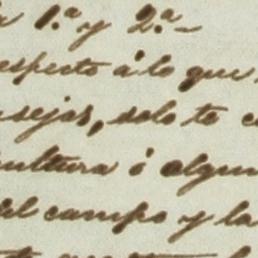 1.ª y 2.ª
especto á lo que
nsejos, solo te
cultura ó algun
del campo y la